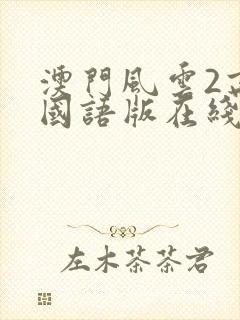 澳門風雲2
國語版在綫
左木茶茶君